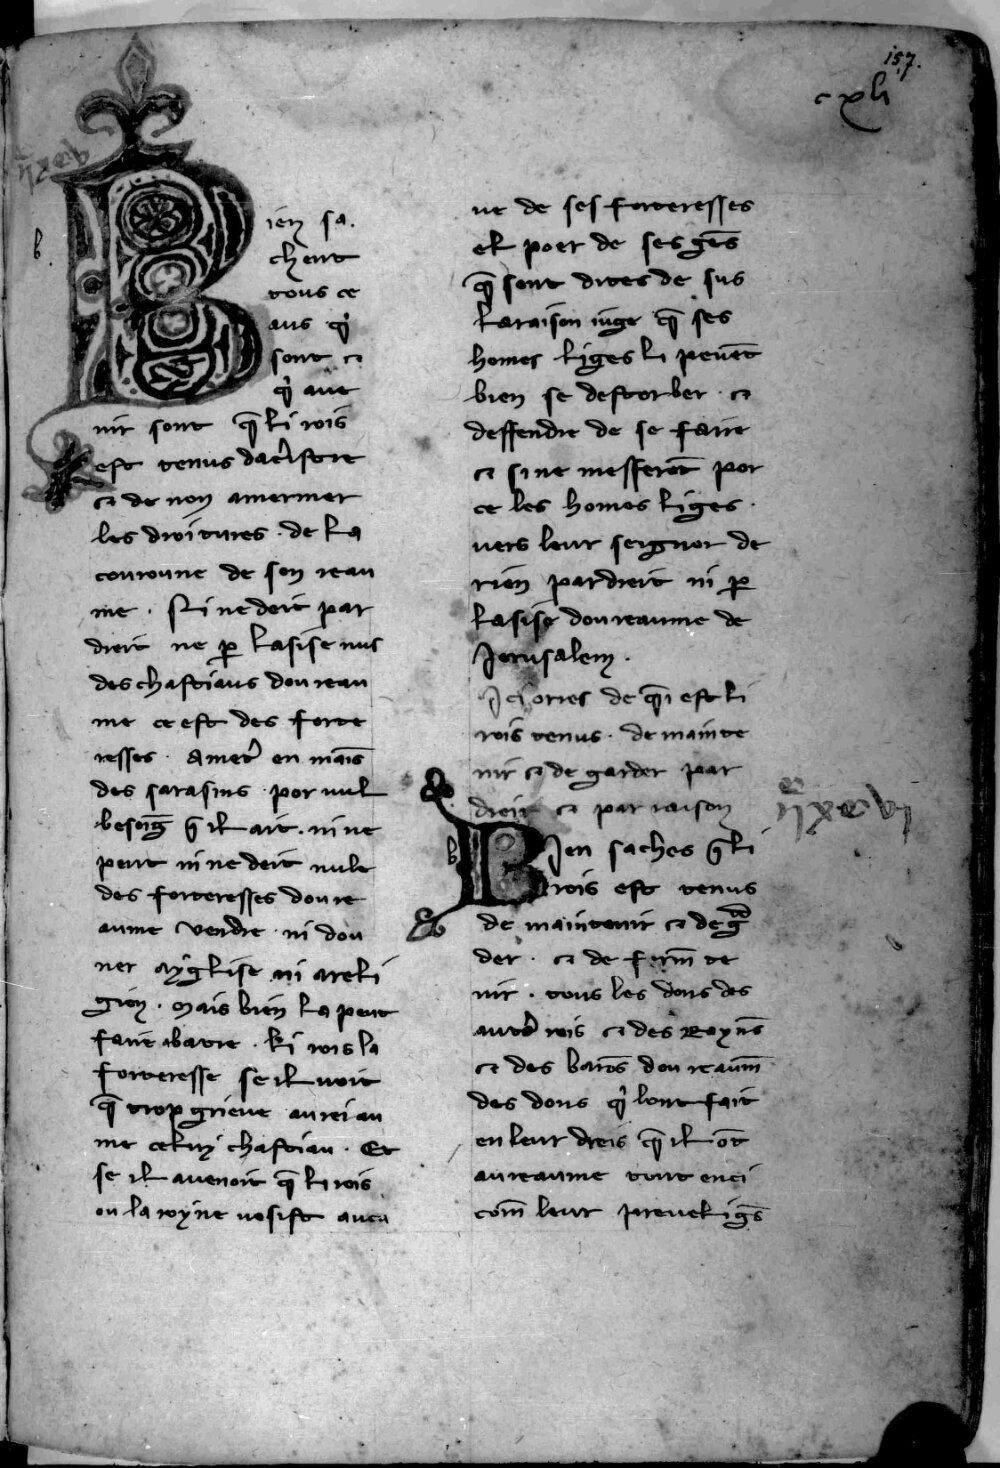 157.
cxli
IIxcv
b.
Bien sa
chent
tous ce
aus q̓
sont ⁊
q̓ aue
nir sont q̄ li rois
est tenus dacͥstre
⁊ de non amermer
les droitures · de la
couroune de son reau
me · Si ne doit par
dreit ne ꝑ lasise nus
des chastiaus dou reau
me ce est des forte
resses · ameť en mais̄
des sarasins · por nul
besoig̃ q̃ il ait · ni ne
peut ni ne deit nule
des forteresses dou re
aume vendre · ni dou
ner a yglise ni a reli
gion · mais bien la peut
faire abatre · li rois la
forteresse se il voit
q̄ trop grieue au reiau
me celuy chastiau · Et
se il auenoit q̄ li rois
ou la royne vosist aucu
ne de ses forteresses
el poer de ses gẽs
q̄ sont dites de sus
la raison iuge q̄ ses
homes liges li peuẽt
bien se destorber · ⁊
deffendre de se faire
⁊ si ne mesferõt por
ce les homes liges ·
uers leur seignor de
rien par dreit ni ꝑ
lasise dou reaume de
Jerusalem ·
Ici orres de q̄i est li
rois tenus · de mainte
nir ⁊ de garder par
dreit ⁊ par raison
IIxcvi
b
Bien saches q̃ li
rois est tenus
de maintenir ⁊ de gᵃr
der · ⁊ de ferm̄ te
nir · tous les dons des
autr̓ rois ⁊ des Roynẽs
⁊ des barõs dou reaum̃
des dons q̓ lont fait
en leur dreis q̄ il õt
au reaume tout enci
com̃ leur preueligẽs